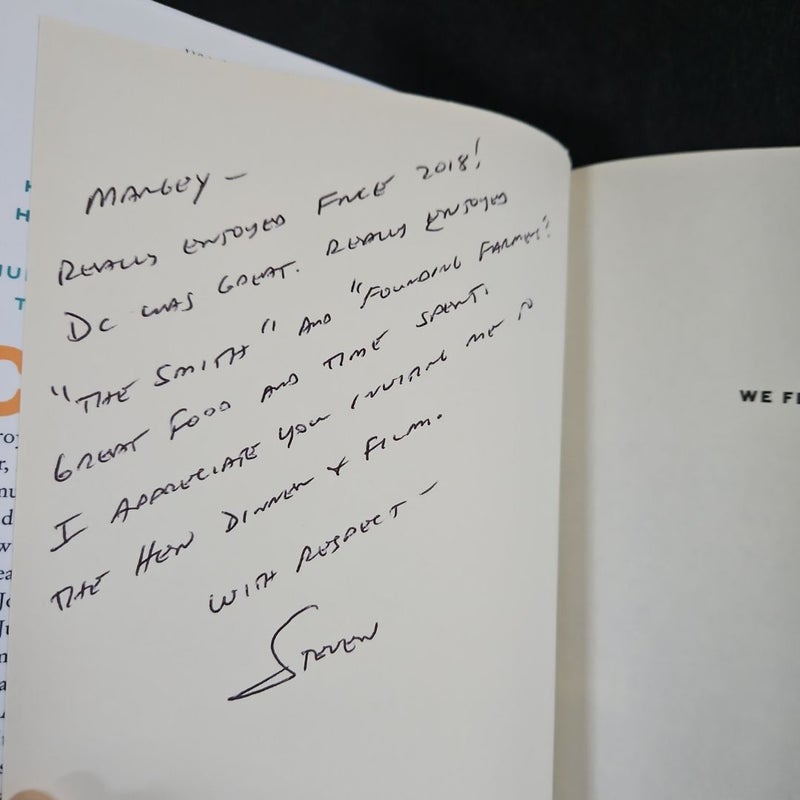 REALLY ENJOYED FNCE 2018!
DC WAS GREAT. REALLY ENJOYED
"THE SMITH" AND "FOUNDING FARMERS".
GREAT FOOD AND TIME SPENT.
I APPRECIATE YOU INVITING ME TO
THE HEN DINNER & FILM.
WITH RESPECT —
STEVEN
WE